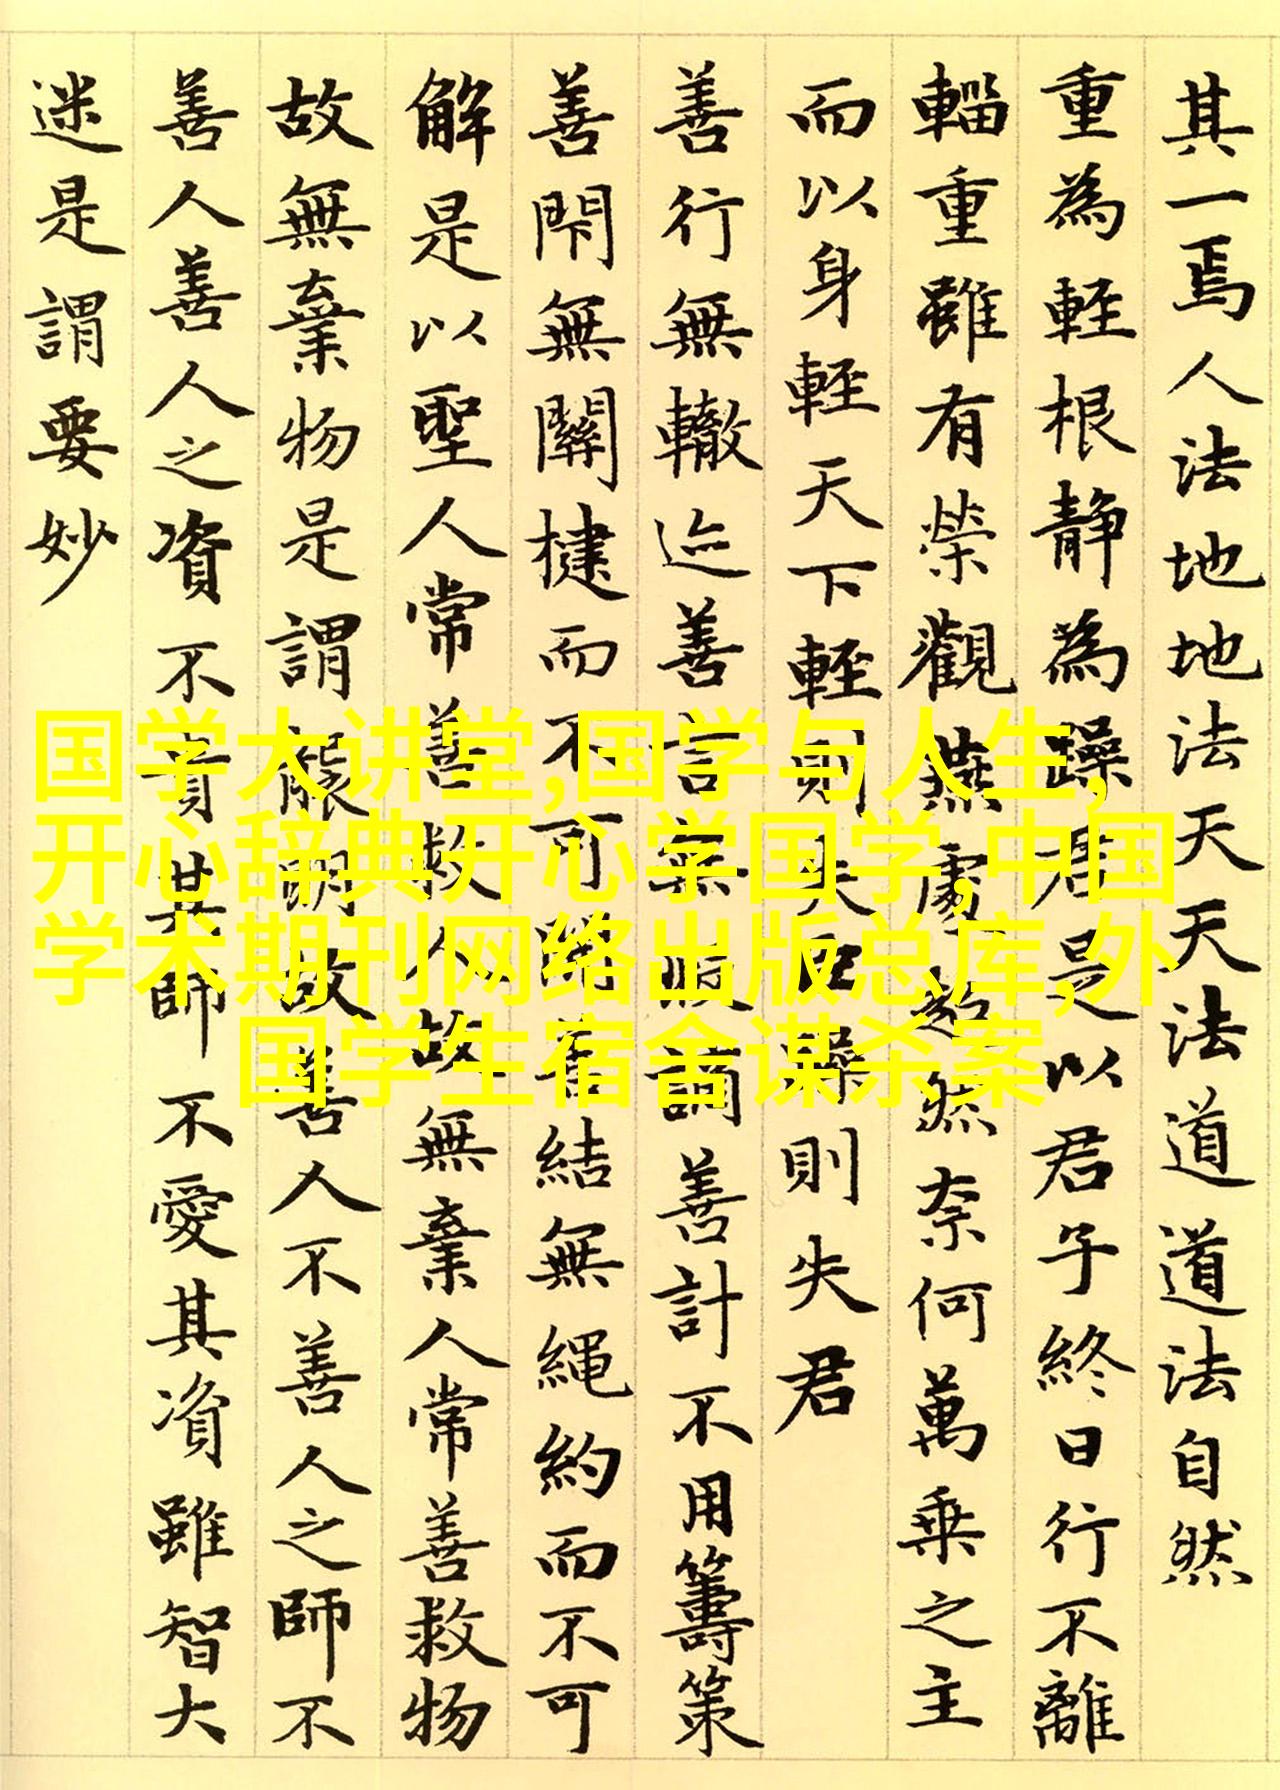 其一焉人法地地法天天法道道法自然
重為輕根靜為躁君是以君子終日行不離
輜重雖有榮觀燕處超然奈何萬乘之主
而以身輕天下輕則失臣躁則失君
善行無轍迹善言無瑕謫善計不用籌策
善閇無關楗而不可開善結無繩約而不可
解是以聖人常善救人故無棄人常善救物
故無棄物是謂襲明故善人不善人之師不
善人善人之資不貴其師不愛其資雖智大
迷是謂要妙
国学大讲堂,国学与人生,
开心辞典开心学国学,中国
学术期刊网络出版总库,外
国学生宿舍谋杀案